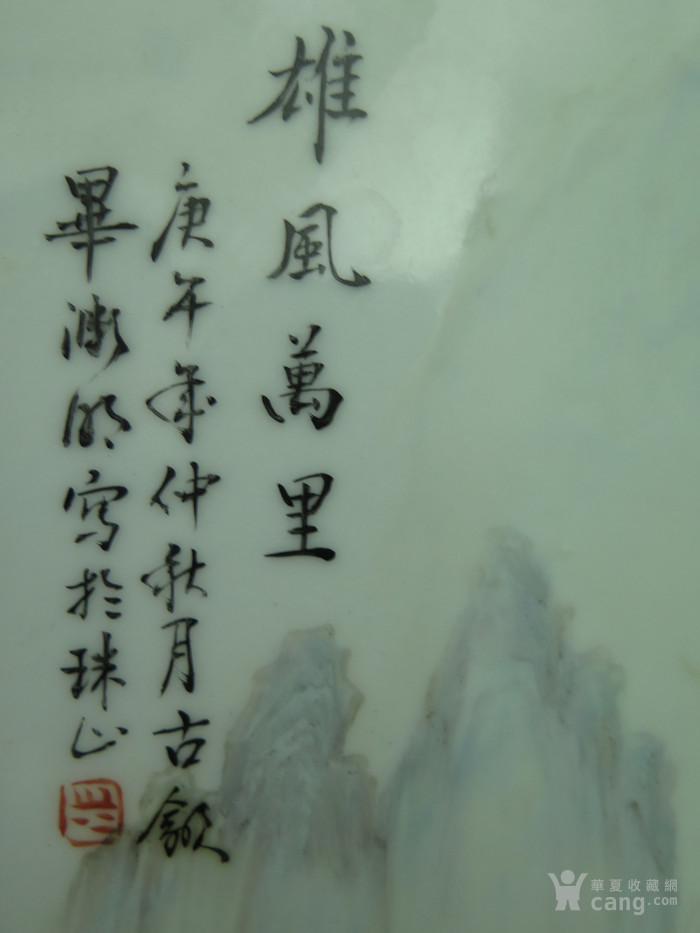 雄風萬里
庚午年仲秋月古歙
畢淵明寫於珠山
華夏收藏網
cang.com